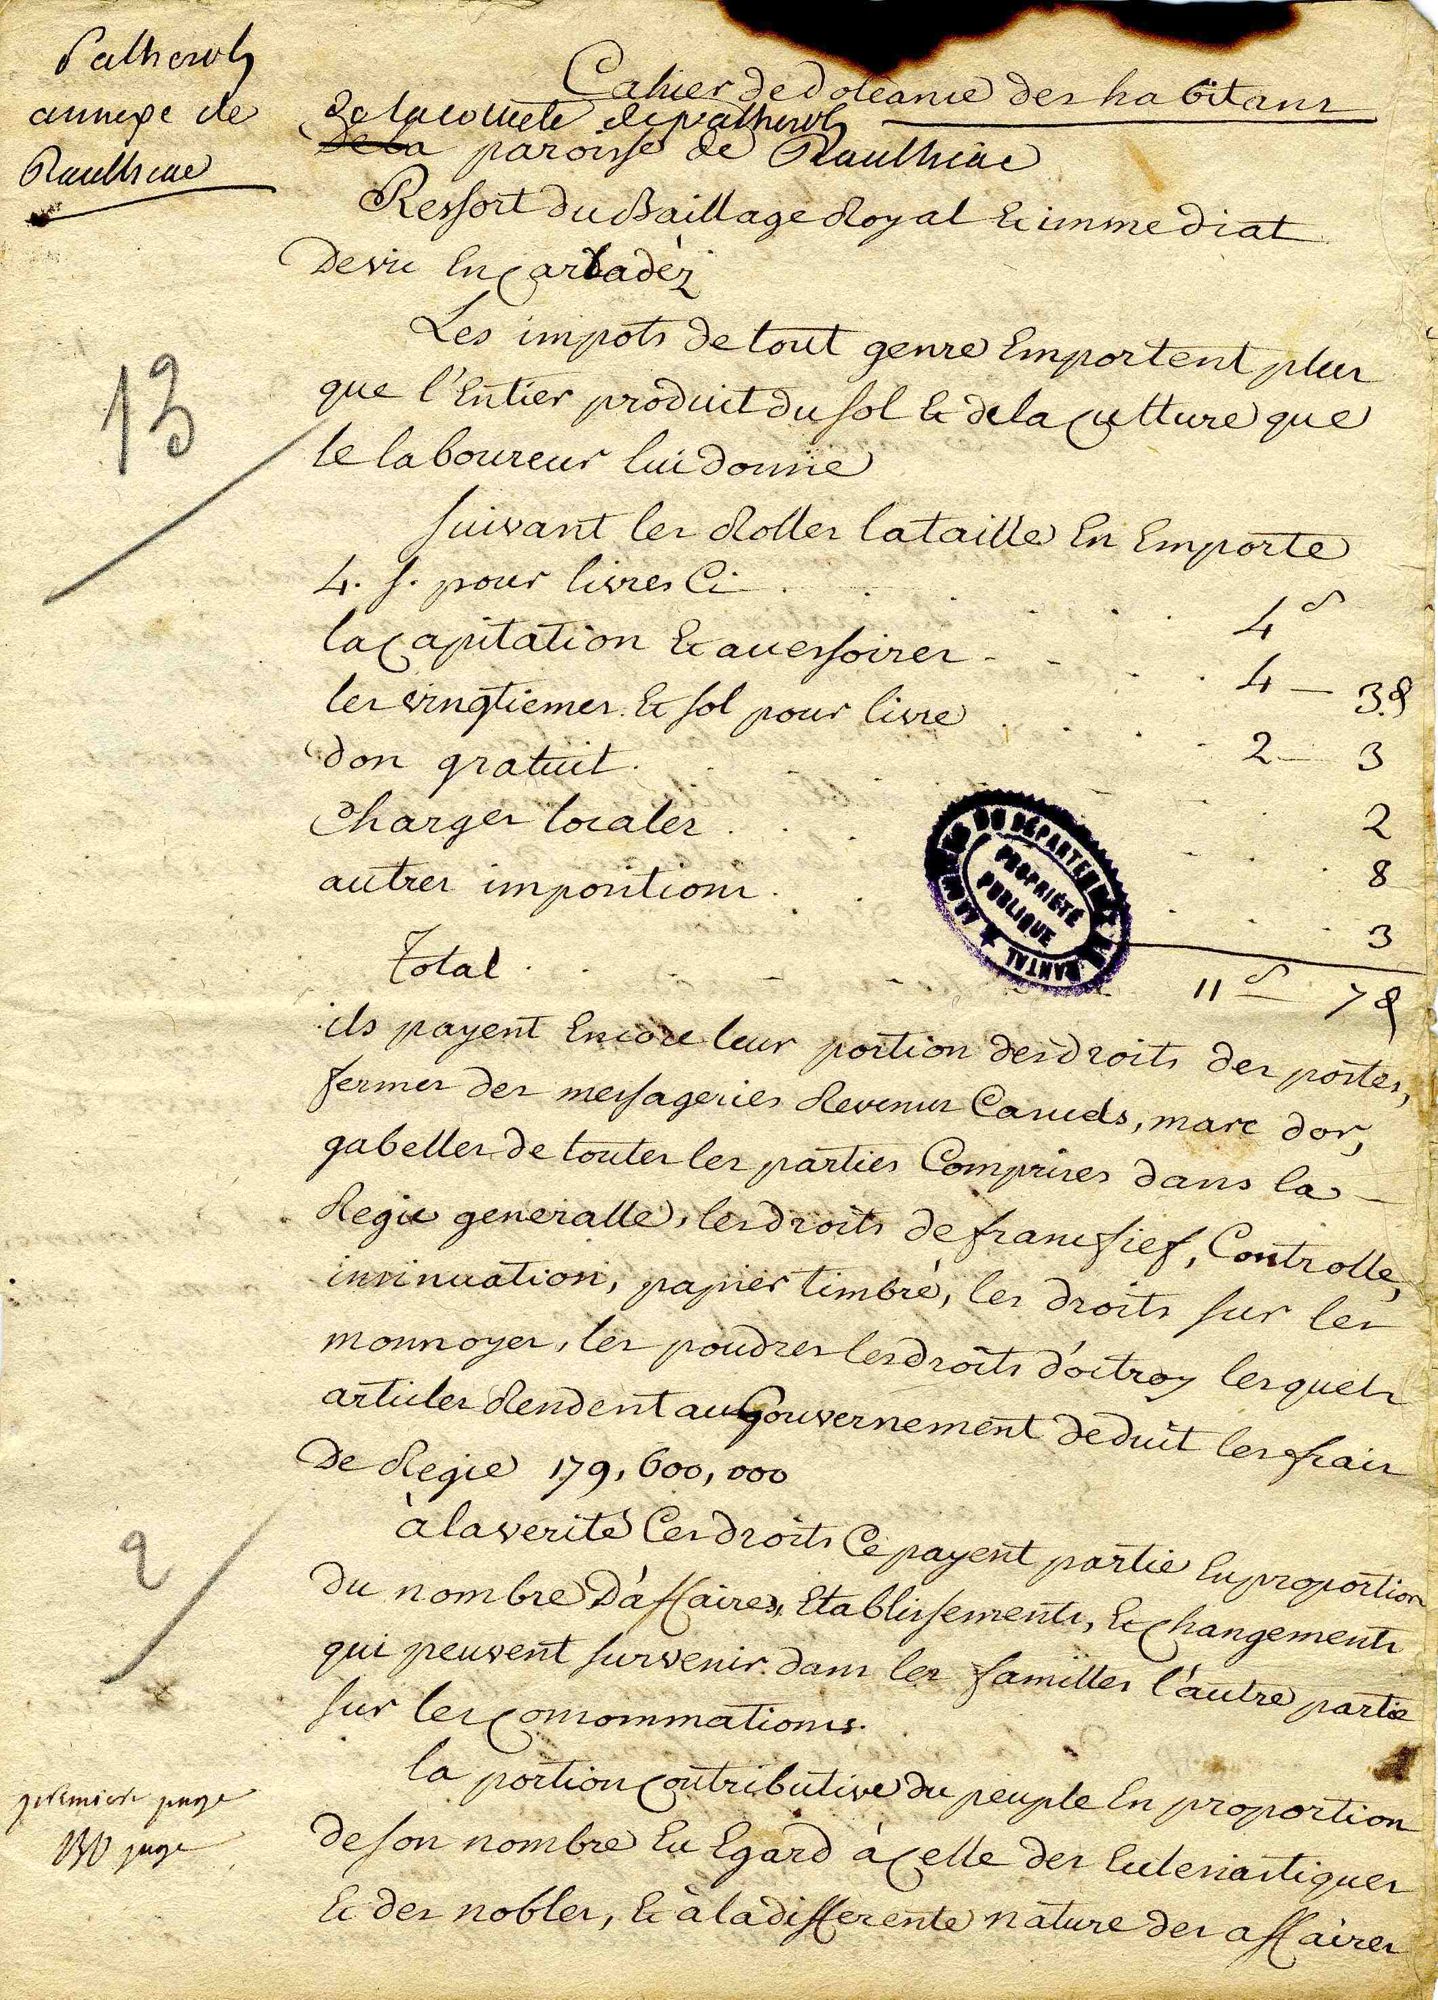 Palherols
annexe de
Raulhiac
Cahier de doleance des habitans
de la collecte de palherols
De la paroisse de Raulhiac
Ressort du Baillage Royal & immediat
De vic En carladèz
13
Les impots de tout genre Emportent plus
que l'Entier produit du sol & de la culture que
le laboureur lui donne
suivant les Rolles la taille En Emporte
4. s. pour livres Ci . . . . . . 4 s
la capitation & accessoires - - . . 4 — 3 d
les vingtiemes & sol pour livre . . . . 2 — 3
don gratuit . . . . . 2
Charges locales . . . . 8
autres impositions . . . . 3
Total . . . . - - 11 s — 7 d
ARCHIVES DU DÉPARTEMENT DU CANTAL
PROPRIÉTÉ
PUBLIQUE
ils payent Encore leur portion des droits des postes,
fermes des messageries Revenus Casuels, marc d'or,
gabelles de toutes les parties Comprises dans la
Regie generalle, les droits de franc fief, Controlle,
insinuation, papier timbré, les droits sur les
monnoyes, les poudres les droits d'octroy lesquels
articles Rendent au Gouvernement deduit les frais
De Regie 179,600,000
à la verité Ces droits Ce payent partie En proportion
du nombre D'affaires, Etablissements, & changements
qui peuvent survenir dans les familles l'autre partie
sur les consommations.
2
la portion contributive du peuple En proportion
de son nombre Eu Egard à celle des Eclesiastiques
& des nobles, & à la differente nature des affaires
premiere page
page